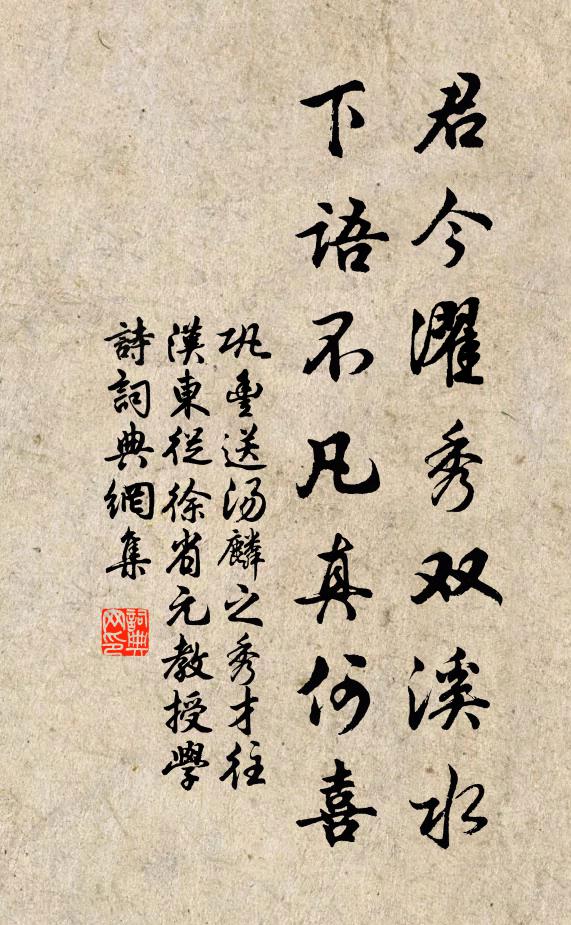 君今濯秀双溪水
下语不凡真何喜
巩丰送汤麟之秀才往
漢東從徐省元教授學
詩詞典網集
詞典
网印